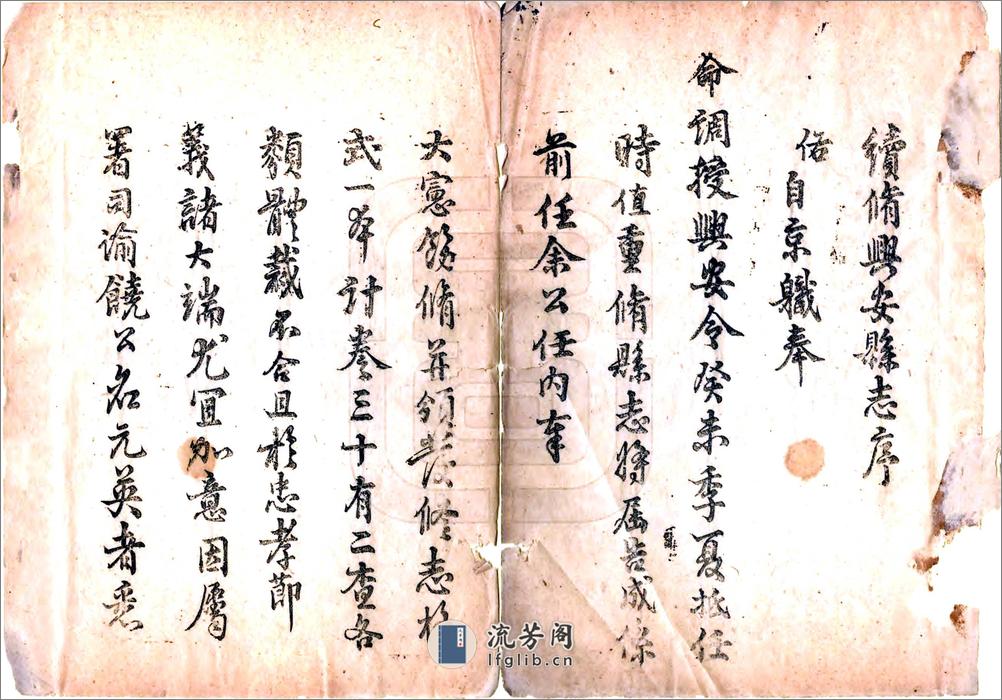 續脩興安縣志序
佑自京職奉
命調授興安令癸未季夏抵任
時值重脩縣志將屆告成係
前任余公任内奉
大憲飭脩并頒發修志格
式一本計卷三十有二查各
類體裁不合且於忠孝節
義諸大端尤宜加意因屬
署司諭饒公名元英者悉
流芳阁
lfglib.cn